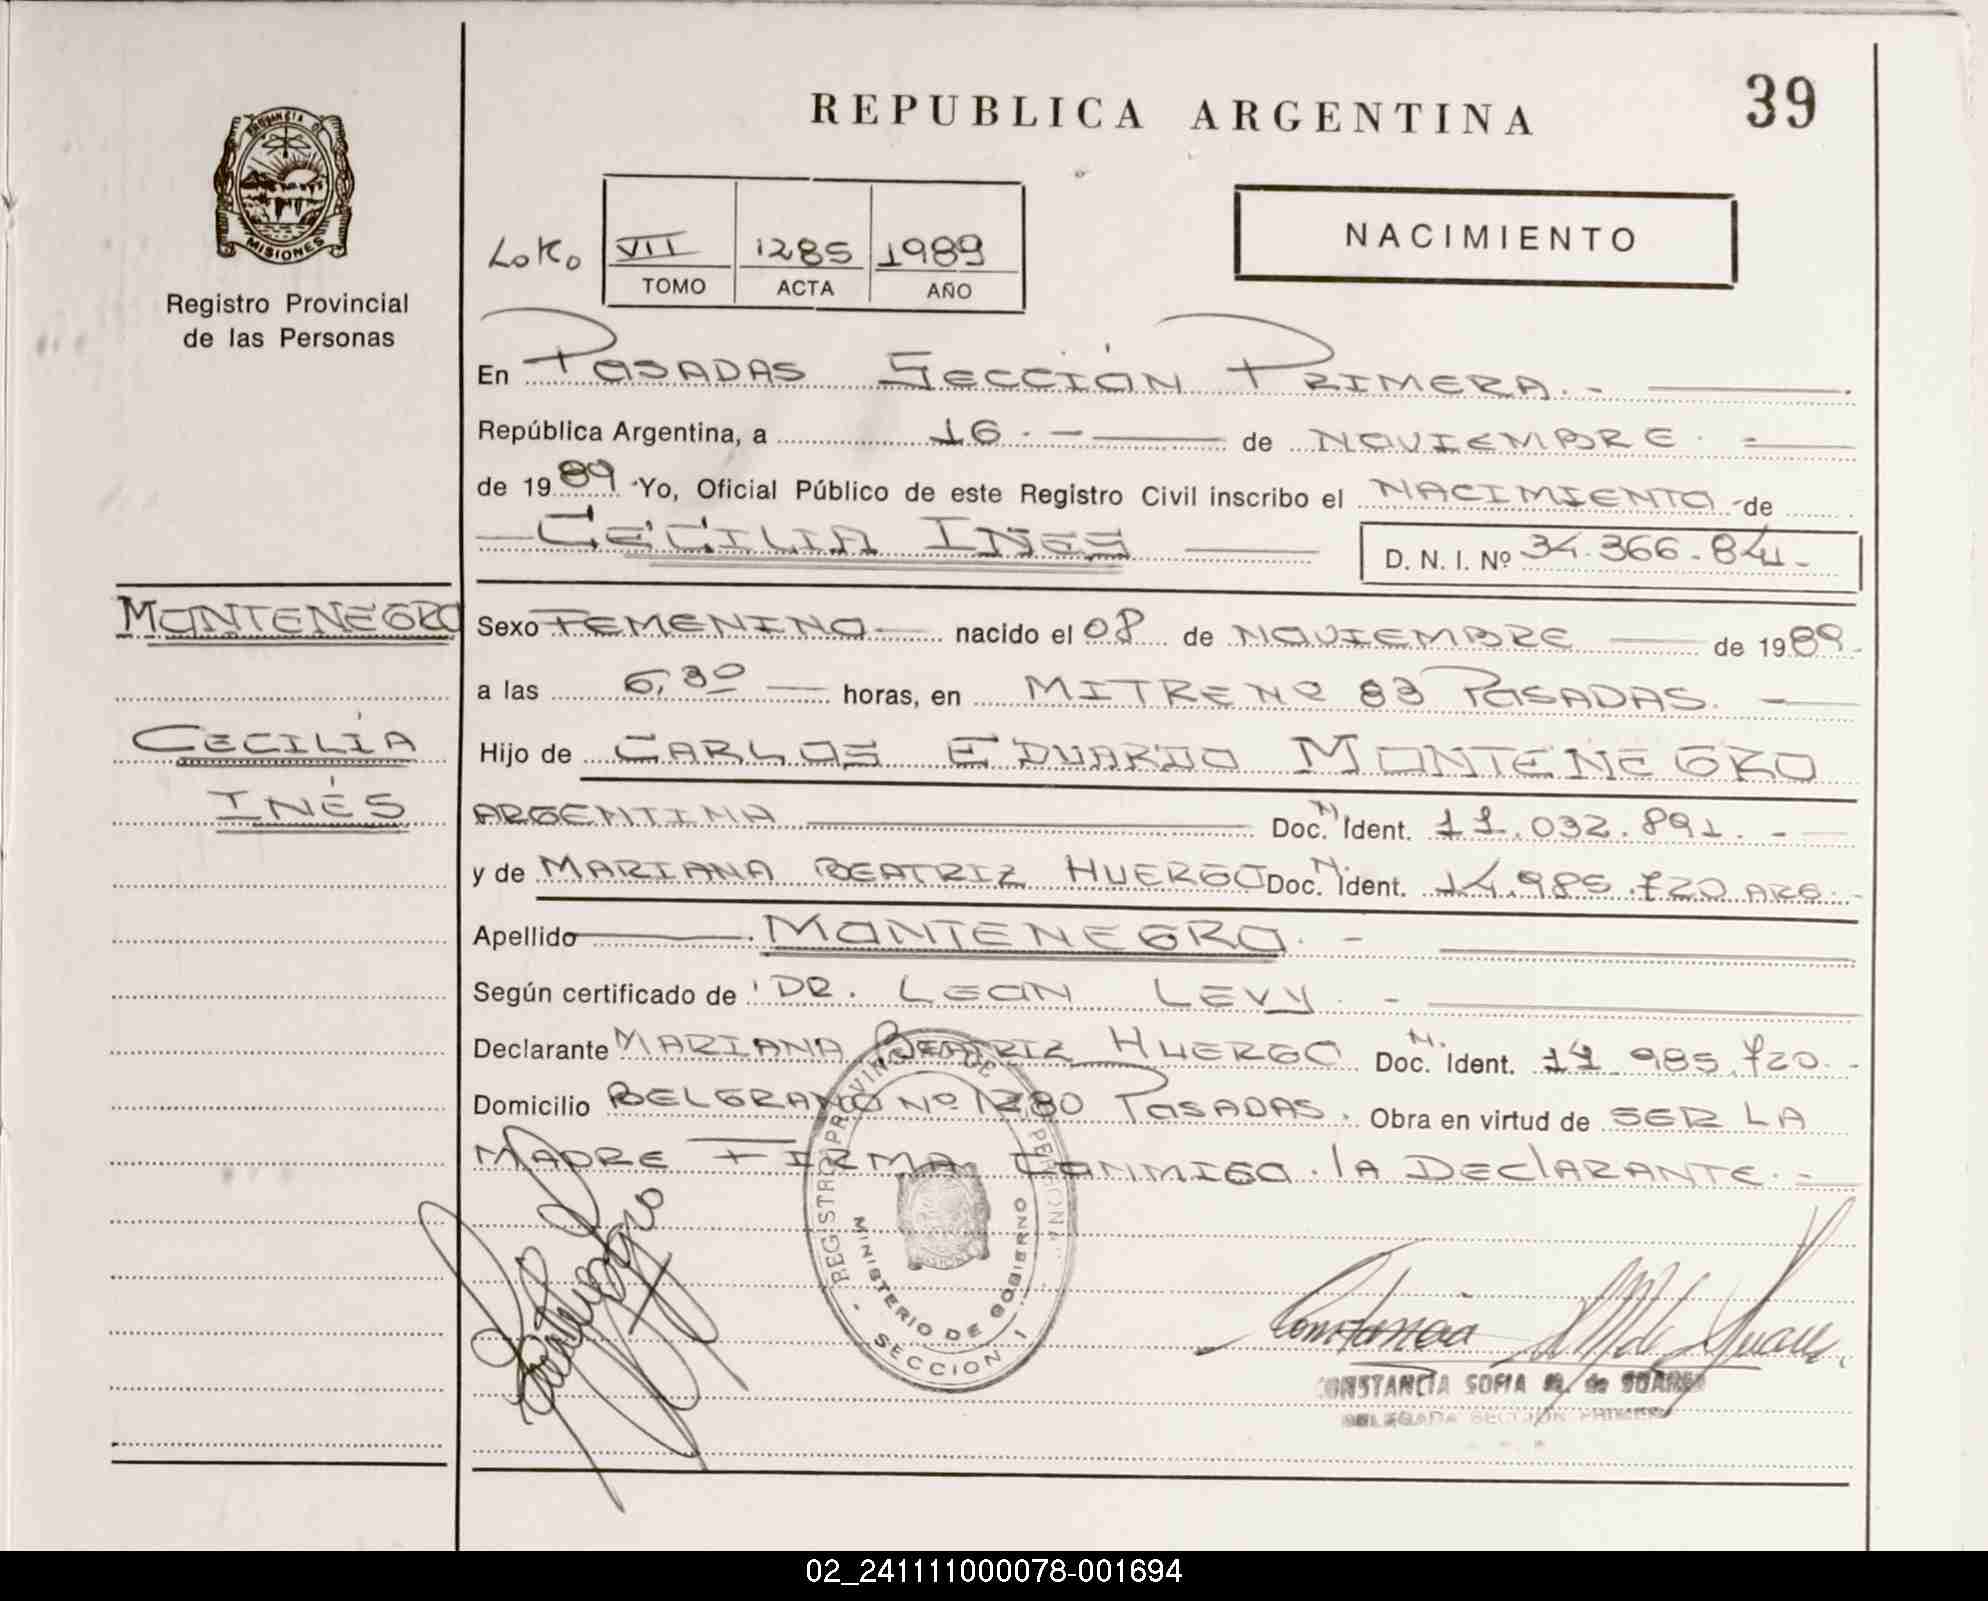 REPUBLICA ARGENTINA
39
PROVINCIA DE
MISIONES
Registro Provincial
de las Personas
VII 1285 1989
TOMO ACTA AÑO
NACIMIENTO
En POSADAS SECCIÓN PRIMERA.-
República Argentina, a 16.- de NOVIEMBRE.-
de 1989 Yo, Oficial Público de este Registro Civil inscribo el NACIMIENTO de
CECILIA INES
D. N. I. Nº 34.366.844.-
MONTENEGRO
CECILIA
INÉS
Sexo FEMENINO nacido el 08 de NOVIEMBRE de 1989.-
a las 6,30 horas, en MITRE Nº 83 POSADAS.-
Hijo de CARLOS EDUARDO MONTENEGRO
ARGENTINA Doc. N. Ident. 11.032.891.-
y de MARIANA BEATRIZ HUERGO Doc. N. Ident. 14.985.720 ARG.-
Apellido MONTENEGRO.-
Según certificado de DR. LEON LEVY.-
Declarante MARIANA BEATRIZ HUERGO Doc. N. Ident. 14.985.720.-
Domicilio BELGRANO Nº 1280 POSADAS. Obra en virtud de SER LA
MADRE FIRMA CONMIGO LA DECLARANTE.-
REGISTRO PROVINCIAL DE LAS PERSONAS
MINISTERIO DE GOBIERNO
SECCION 1
CONSTANCIA SOFIA M. de SUAREZ
DELEGADA SECCION PRIMERA
02_241111000078-001694